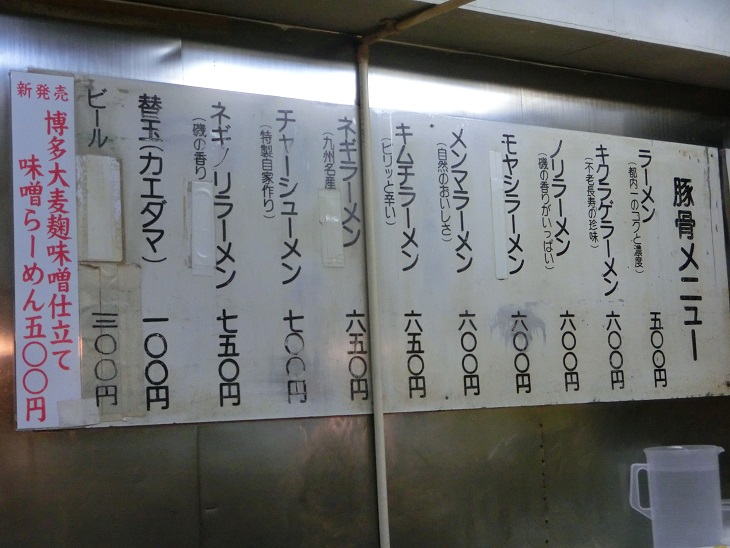 豚骨メニュー
ラーメン
(都内一のコクと濃度)
五〇〇円
キクラゲラーメン
(不老長寿の珍味)
六〇〇円
ノリラーメン
(磯の香りがいっぱい)
六〇〇円
モヤシラーメン
六〇〇円
メンマラーメン
(自然のおいしさ)
六〇〇円
キムチラーメン
(ピリッと辛い)
六五〇円
ネギラーメン
(九州名産
六五〇円
チャーシューメン
(特製自家作り)
七〇〇円
ネギノリラーメン
(磯の香り)
七五〇円
替玉(カエダマ)
一〇〇円
ビール
三〇〇円
新発売
博多大麦麹味噌仕立て
味噌らーめん五〇〇円